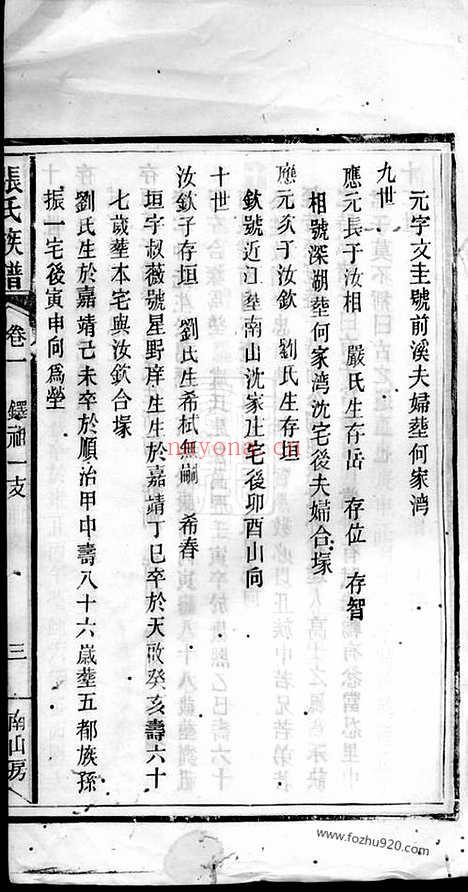 元字文圭號前溪夫婦塟何家湾
九世
應元長子汝相 嚴氏生存岳 存位 存智
相號深湖塟何家湾沈宅後夫婦合塚
應元次子汝欽 劉氏生存垣
欽號近江塟南山沈家庄宅後卯酉山向
十世
汝欽子存垣 劉氏生希栻無嗣 希春
垣字叔薇號星野庠生生於嘉靖丁巳卒於天啟癸亥壽六十
七歲塟本宅與汝欽合塚
劉氏生於嘉靖己未卒於順治甲申壽八十六歲塟五都族孫
振一宅後寅申向為塋
張氏族譜 卷一 鐸祖一支 三 南山房
nayona.cn
www.fozhu920.com